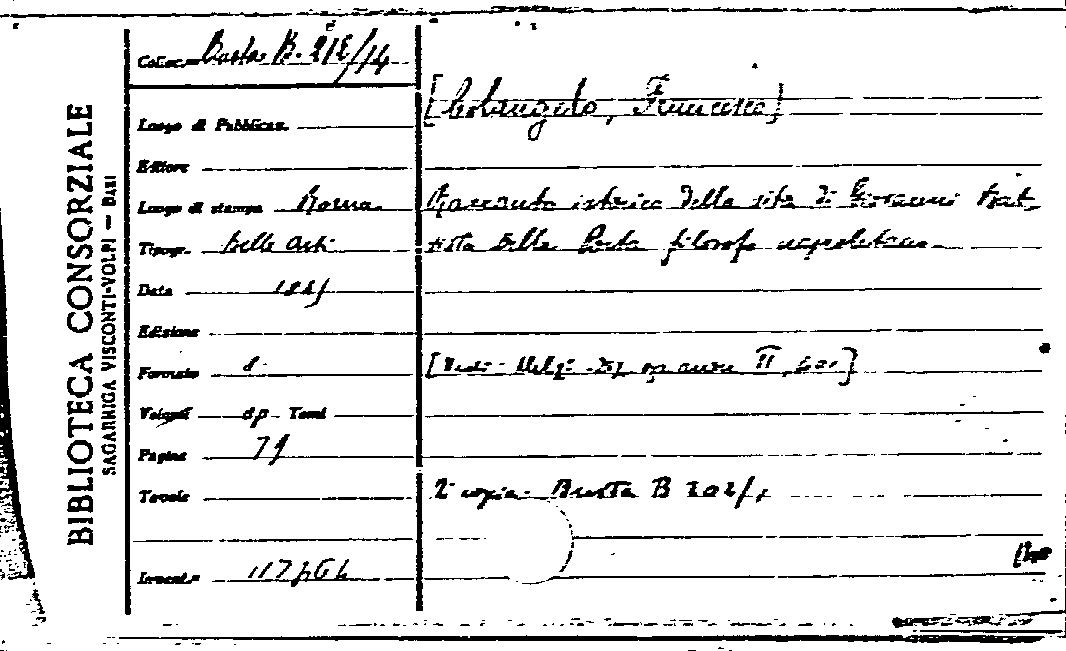 BIBLIOTECA CONSORZIALE
SAGARRIGA VISCONTI-VOLPI — BARI
Colloc.ne Busta B. 212/14
Luogo di Pubblicaz.
Editore
Luogo di stampa Roma
Tipogr. Belle Arti
Data
Edizione
Formato 8°
Volumi op. Tomi
Pagine 79
Tavole
Invent.e
[Colangelo, Francesco]
Racconto istorico della vita di Giovanni Bat-
tista Della Porta filosofo napoletano.
[Vedi: Melzi - Diz. op. anon. II,
2ª copia. Busta B 202/